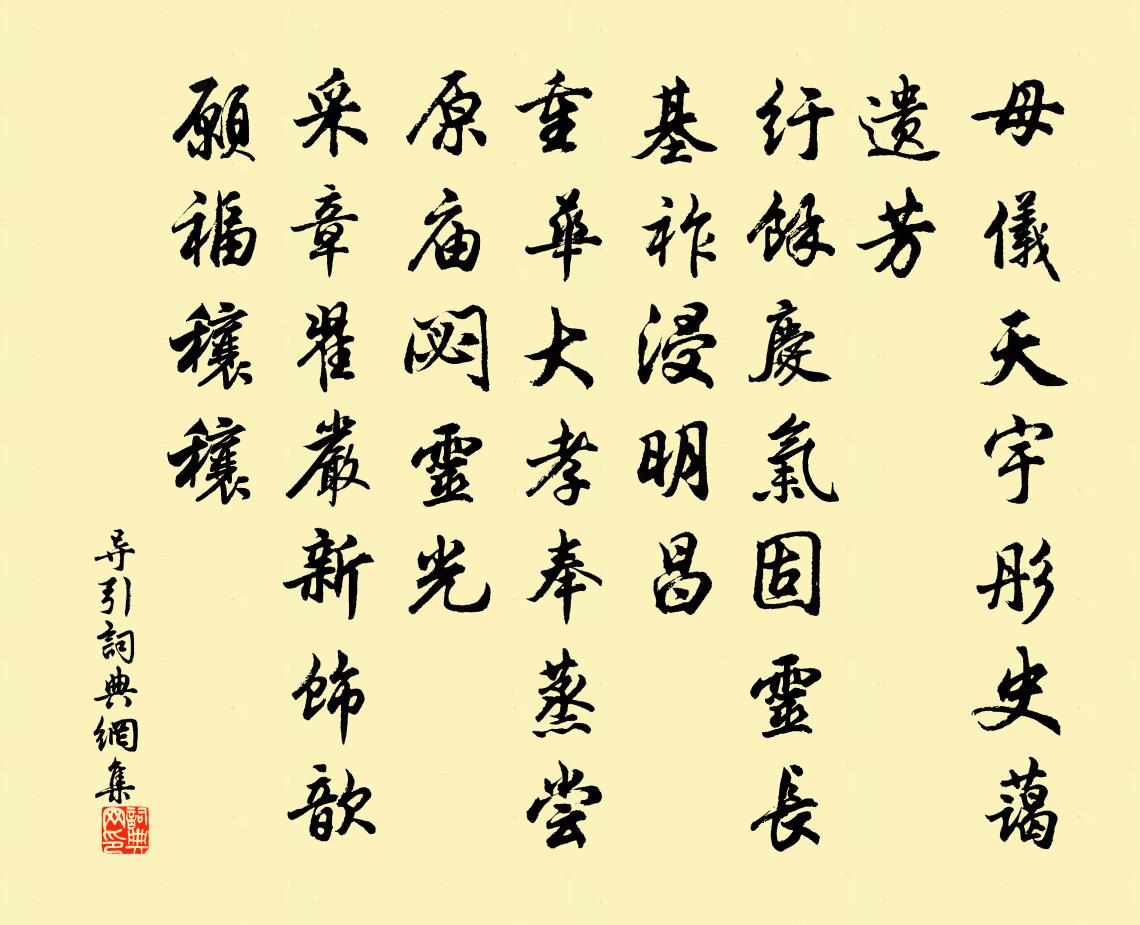 母儀天宇彤史藹
遗芳
紆餘慶氣固靈長
基祚浸明昌
重華大孝奉蒸尝
原庙閟靈光
采章翟嚴新饰歆
願福穰穰
导引詞典網集
詞典网印